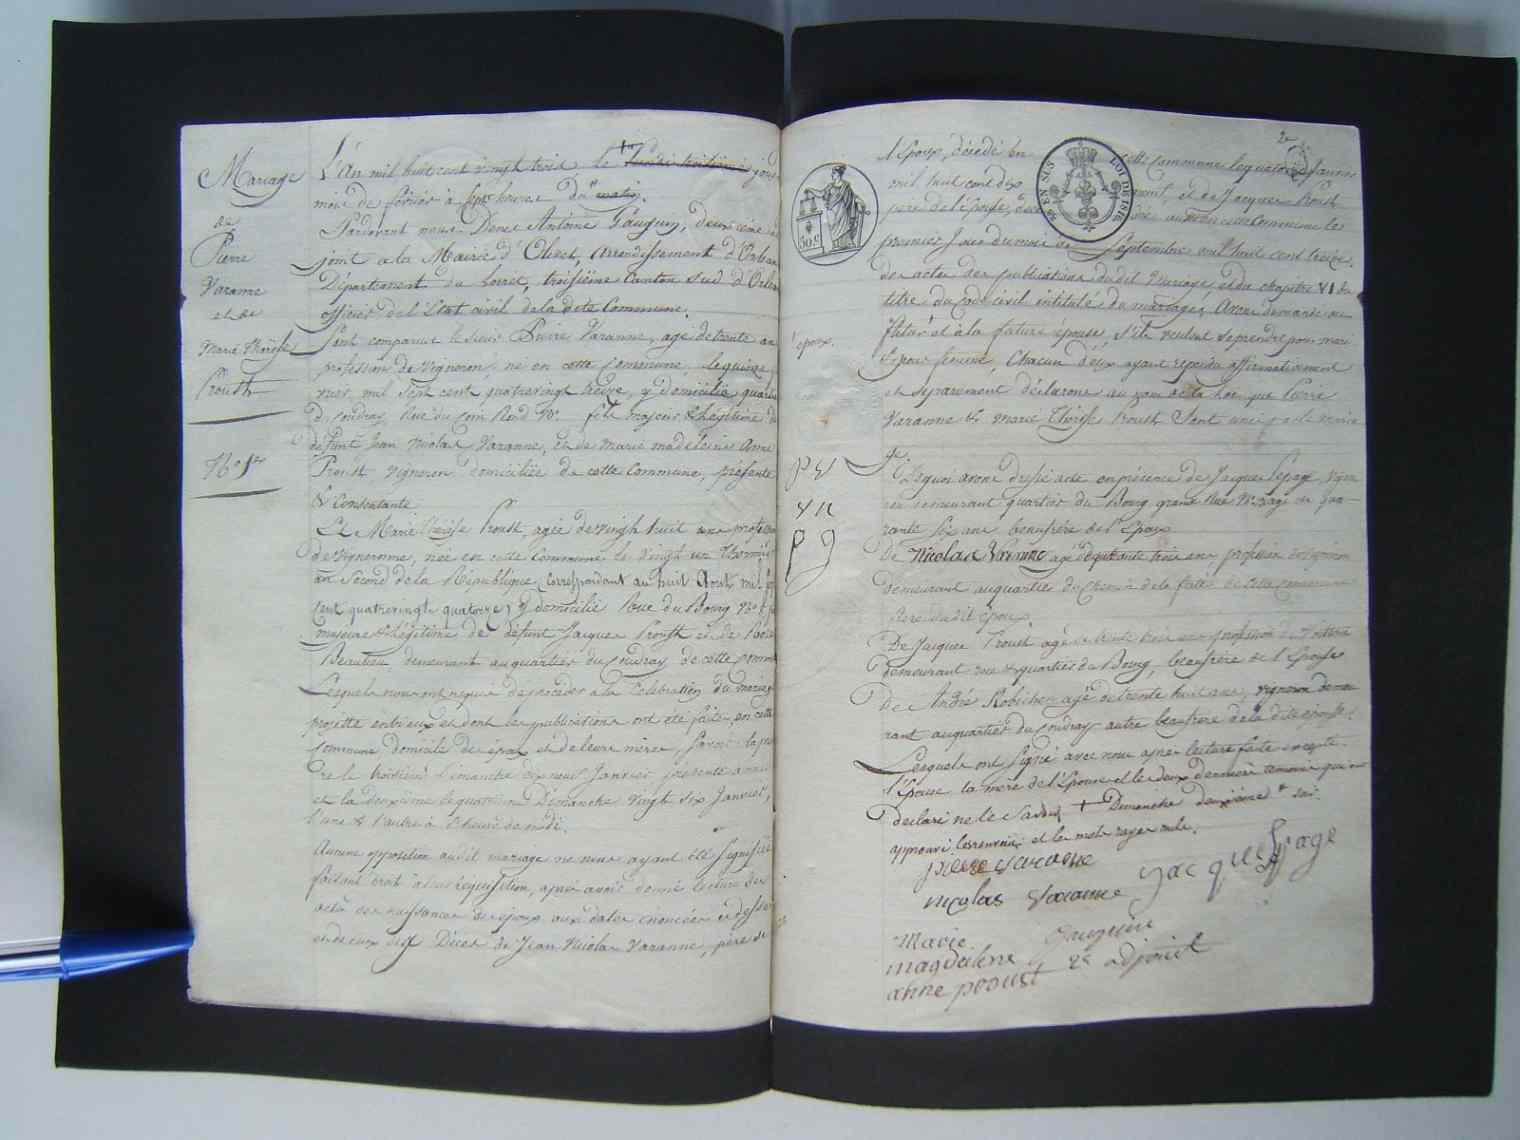 Mariage
de
Pierre
Varanne
et de
Marie Thérèse
Proust
N° 1er
L'An mil huit cent vingt trois, le + Lundi troisième jour
mois de février à sept heures du matin.
Pardevant nous Denis Antoine Gauguin, deuxième ad
joint a la Mairie d'Olivet, arrondissement d'Orléans
Département du Loiret, troisième Canton sud d'Orléans
officier de l'Etat civil de la dete Commune.
Sont comparut le sieur Pierre Varanne, agé de trente an
profession de vigneron, né en cette Commune, le quinze
vier, mil sept cent quatrevingt treize, y domicilié quartier
d. coudray, Rue du Coin Rond N°. fils majeur & légitime de
defunt Jean Nicolas Varanne, et de Marie madeleine Anne
Proust vigneron domiciliée de cette Commune, présente
& Consentante
Et Marie Therese Proust, agée de vingt huit ans profession
de vigneronne, née en cette Commune le vingt un Thermidor
an Second de la République, correspondant au huit Aout mil sept
cent quatrevingt quatorze, y domicilié Rue du Bourg N°
majeure & légitime de défunt Jacques Proust et de
Beaulieu demeurant au quartier du Coudray de cette Commune
Lesquels nous ont requis de procéder à la Célébration du mariage
projetté entr'eux et dont les publications ont été faites en cette
Commune domicile des époux et de leurs mères, savoir la pre
re le troisième Dimanche dix neuf Janvier présente année
et la deuxième le quatrième Dimanche vingt six Janvier,
l'une & l'autre à l'heure de midi.
Aucune opposition audit mariage ne nous ayant été signifiée
faisant droit à leur réquisition, après avoir donné lecture des
actes de naissance des époux aux dates énoncées ci dessus
et de ceux des Décès de Jean Nicolas Varanne, père de
2e
l'Epoux, décédé en cette Commune le quatorze Janvier
mil huit cent dix et de Jacques Proust
père de l'épouse, en cette Commune le
premier Jour du mois de Septembre mil huit cent treize.
des actes des publications du dit Mariage, et du chapitre VI du
titre du code civil intitulé du mariage, Avons demandé au
futur et à la future épouse, s'ils veulent se prendre pour mari
& pour femme, Chacun d'eux ayant repondu affirmativement
et séparement déclarons au nom de la Loi que Pierre
Varanne & Marie Thérèse Proust Sont unis par le maria
ge.
De quoi avons dressé acte en présence de Jacques Lepage, vigne
ron demeurant quartier du Bourg grande Rue N°. agé de qua-
rante six ans beaufrère de l'Epoux
De Nicolas Varanne agé de quarante trois ans, profession de vigneron
demeurant au quartier du Chemin de la fette de cette commune
frère du dit époux,
De Jacques Proust agé de trente trois ans profession de Voiturier
demeurant rue & quartier du Bourg, beaufrère de l'Epouse
De André Robichon agé de trente huit ans, vigneron demeu
rant au quartier du Coudray autre beaufrère de la dite épouse.
Lesquels ont signé avec nous après lecture faite excepté
l'Epouse la mère de l'Epouse et les deux derniers temoins qui ont
declaré ne le savoir + Dimanche deuxième & soir
approuvé les renvois et les mots rayés nuls.
pierre varanne
Jacques Lepage
nicolas varanne
Marie
magdelene
anne proust
Gauguin
2e adjoint
l'époux.
50 c
EN SUS
LOI DE 1816